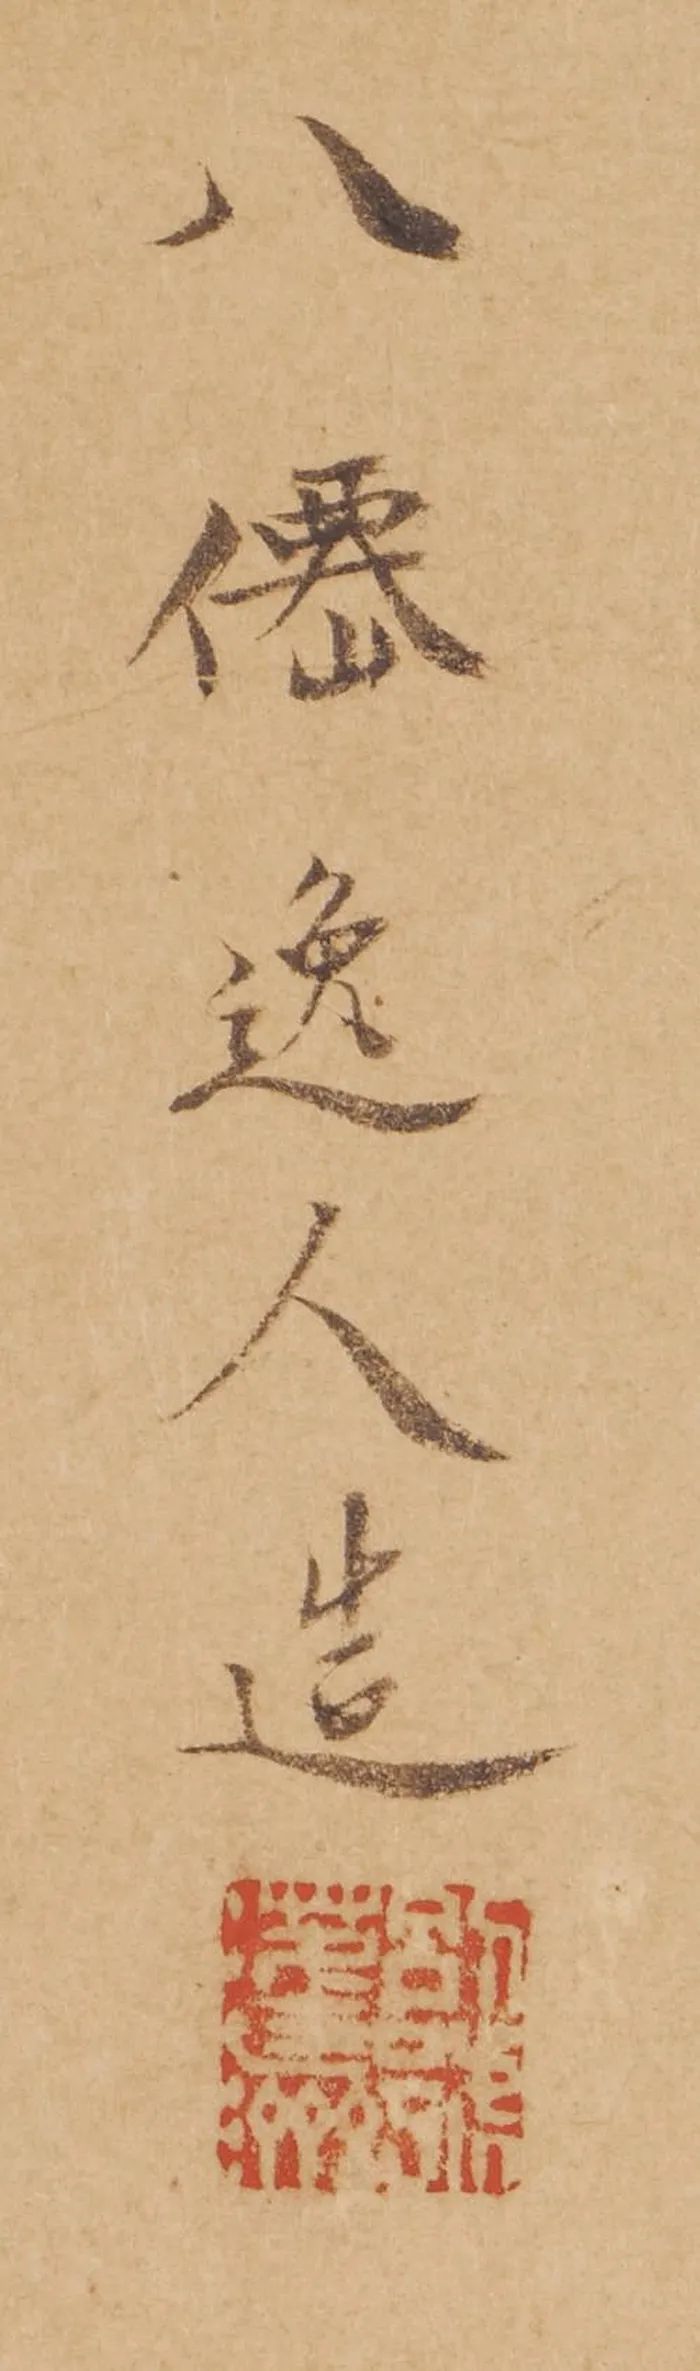 八僊逸人造